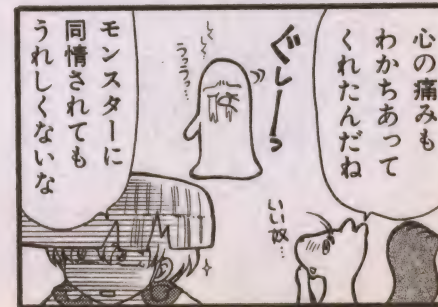 心の痛みも
わかちあって
くれたんだね
ぐしーっ
うっうっ…
いい奴…
モンスターに
同情されても
うれしくないな